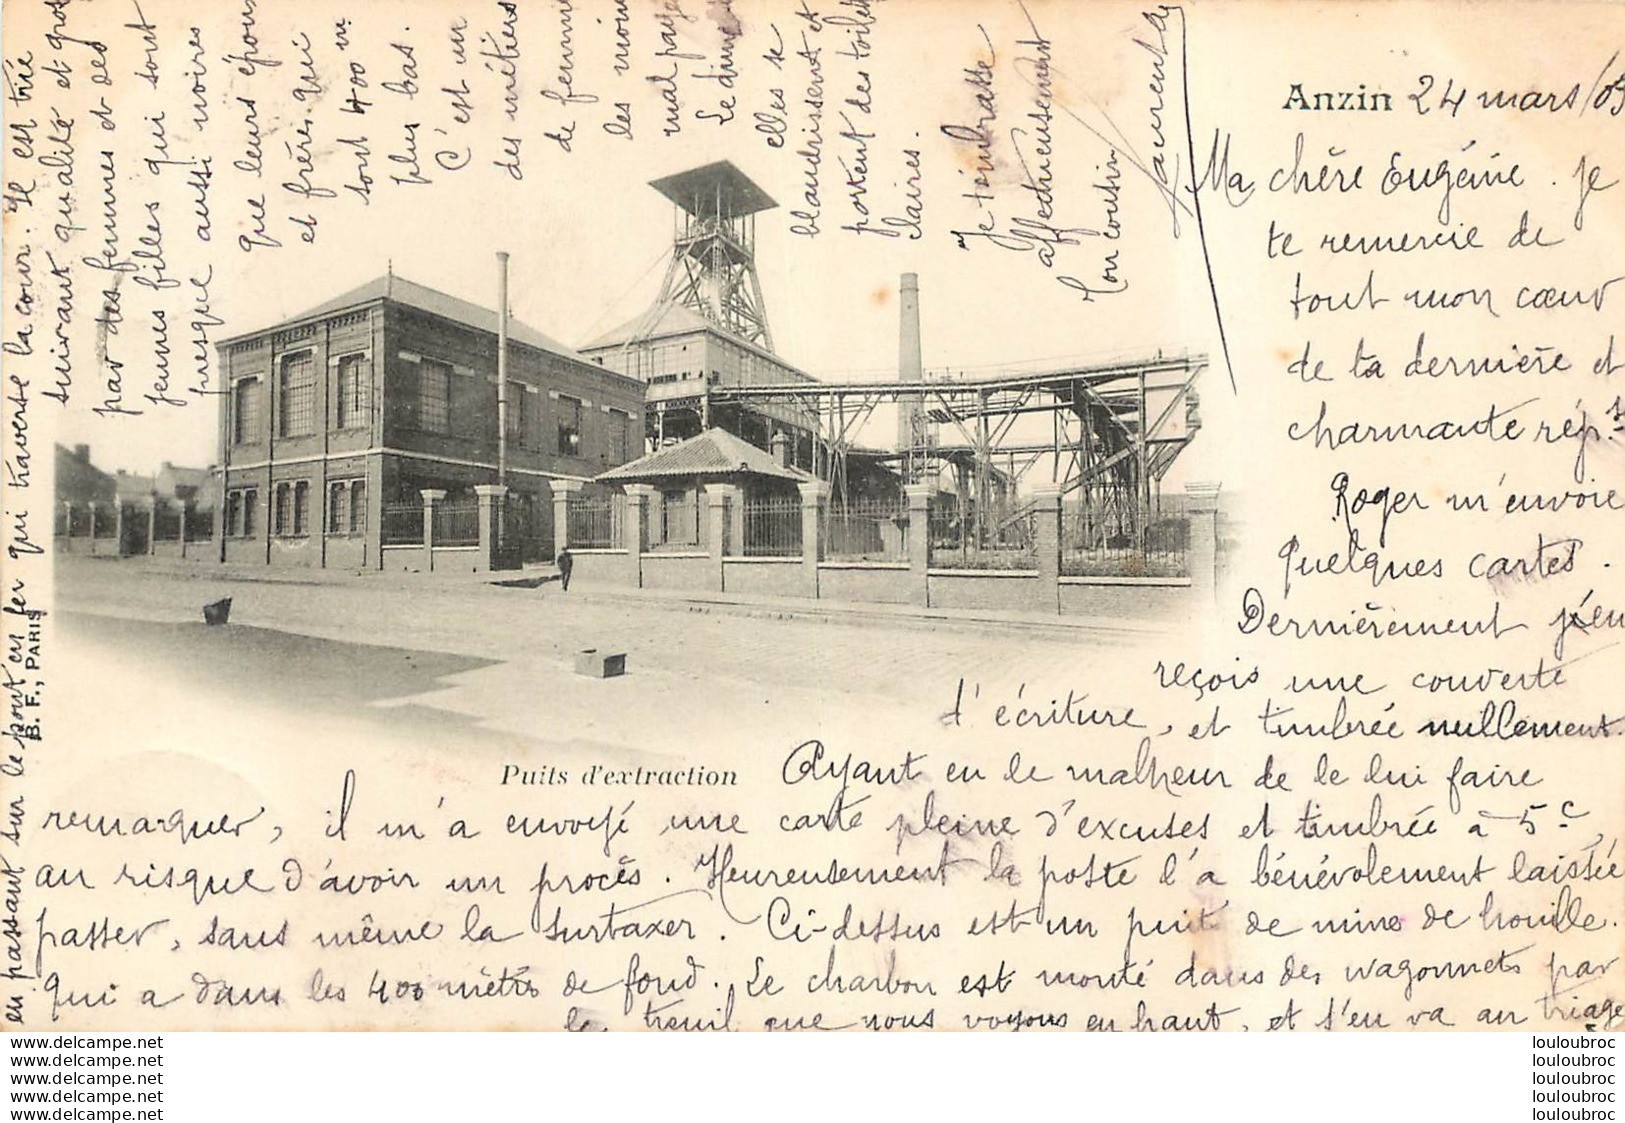 Anzin 24 mars/05
Ma chère Eugénie. Je
te remercie de
tout mon cœur
de ta dernière et
charmante rép.se
Roger m'envoie
quelques cartes.
Dernièrement j'en
reçois une couverte
d'écriture, et timbrée nullement.
Puits d'extraction
Ayant eu le malheur de le lui faire
remarquer, il m'a envoyé une carte pleine d'excuses et timbrée à 5c,
au risque d'avoir un procès. Heureusement la poste l'a bénévolement laissée
passer, sans même la surtaxer. Ci-dessus est un puits de mine de houille.
qui a dans les 400 mètres de fond. Le charbon est monté dans des wagonnets par
le treuil que nous voyons en haut, et s'en va au triage
en passant sur le pont en fer qui traverse la cour. Il est trié
suivant qualité et gros
par des femmes et des
jeunes filles qui sont
presque aussi noires
que leurs épous
et frères qui
sont 400 m
plus bas.
C'est un
des métiers
de femme
les moin
mal payé
Le dime
elles se
blaudrissent et
portent des toilet
claires.
Je t'embrasse
affectueusement
Ton cousin
B. F., PARIS
www.delcampe.net
www.delcampe.net
www.delcampe.net
www.delcampe.net
www.delcampe.net
louloubroc
louloubroc
louloubroc
louloubroc
louloubroc